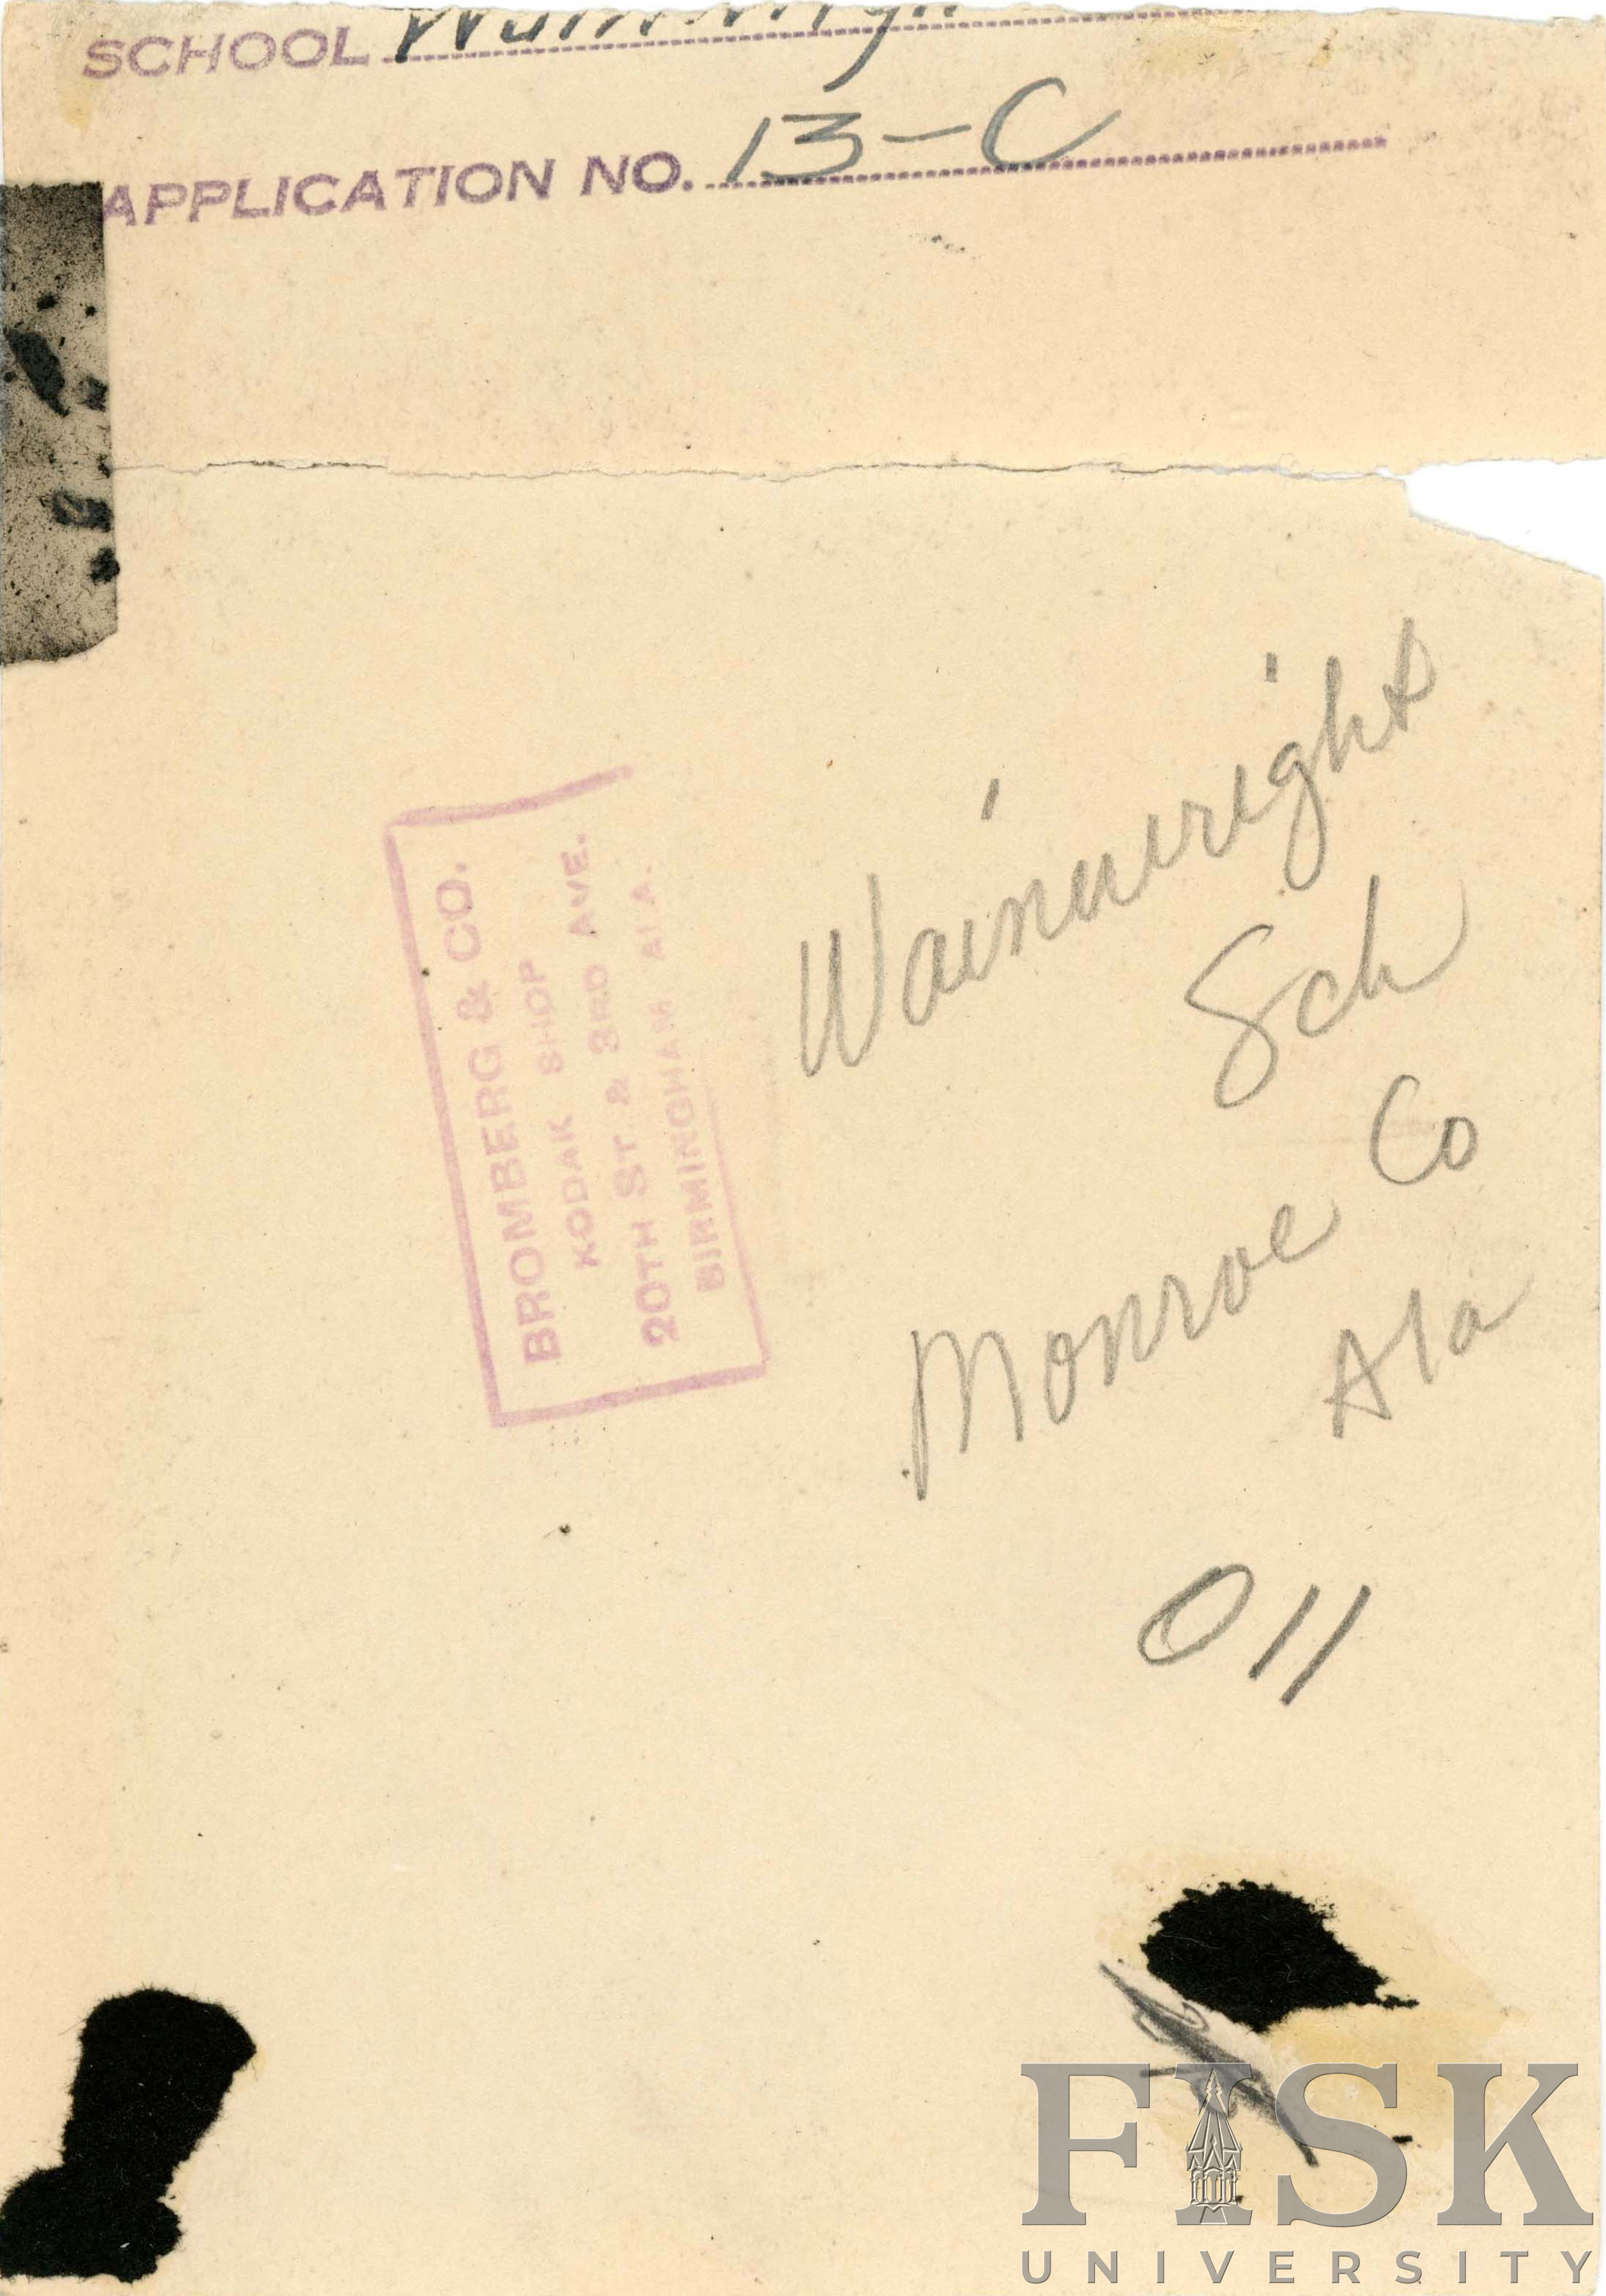 SCHOOL
APPLICATION NO. 13-C
Wainwright
Sch
Monroe Co
Ala
011
BROMBERG & CO.
KODAK SHOP
20TH ST. & 3RD AVE.
BIRMINGHAM ALA.
FISK
UNIVERSITY